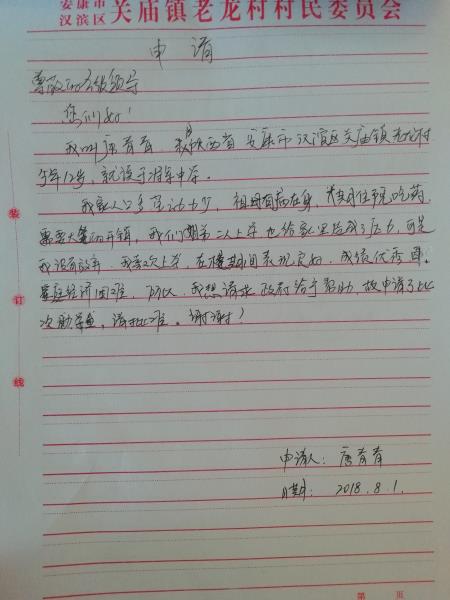 安康市
汉滨区 关庙镇老龙村村民委员会
申请
尊敬的各级领导
您们好！
我叫唐育育，来自陕西省安康市汉滨区关庙镇老龙村
今年12岁，就读于 中学。
我家人口多劳动力少，祖母有病在身，常年住院吃药
需要大笔的开销，我们姐弟二人上学也给家里造成了压力，可是
我没有放弃，我喜欢上学，在校期间表现良好，成绩优秀。
家庭经济困难，所以，我想请求政府给予帮助，故申请了此
次助学金，请批准。谢谢！
申请人：唐育育
日期：2018.8.1.
装
订
线
第 页